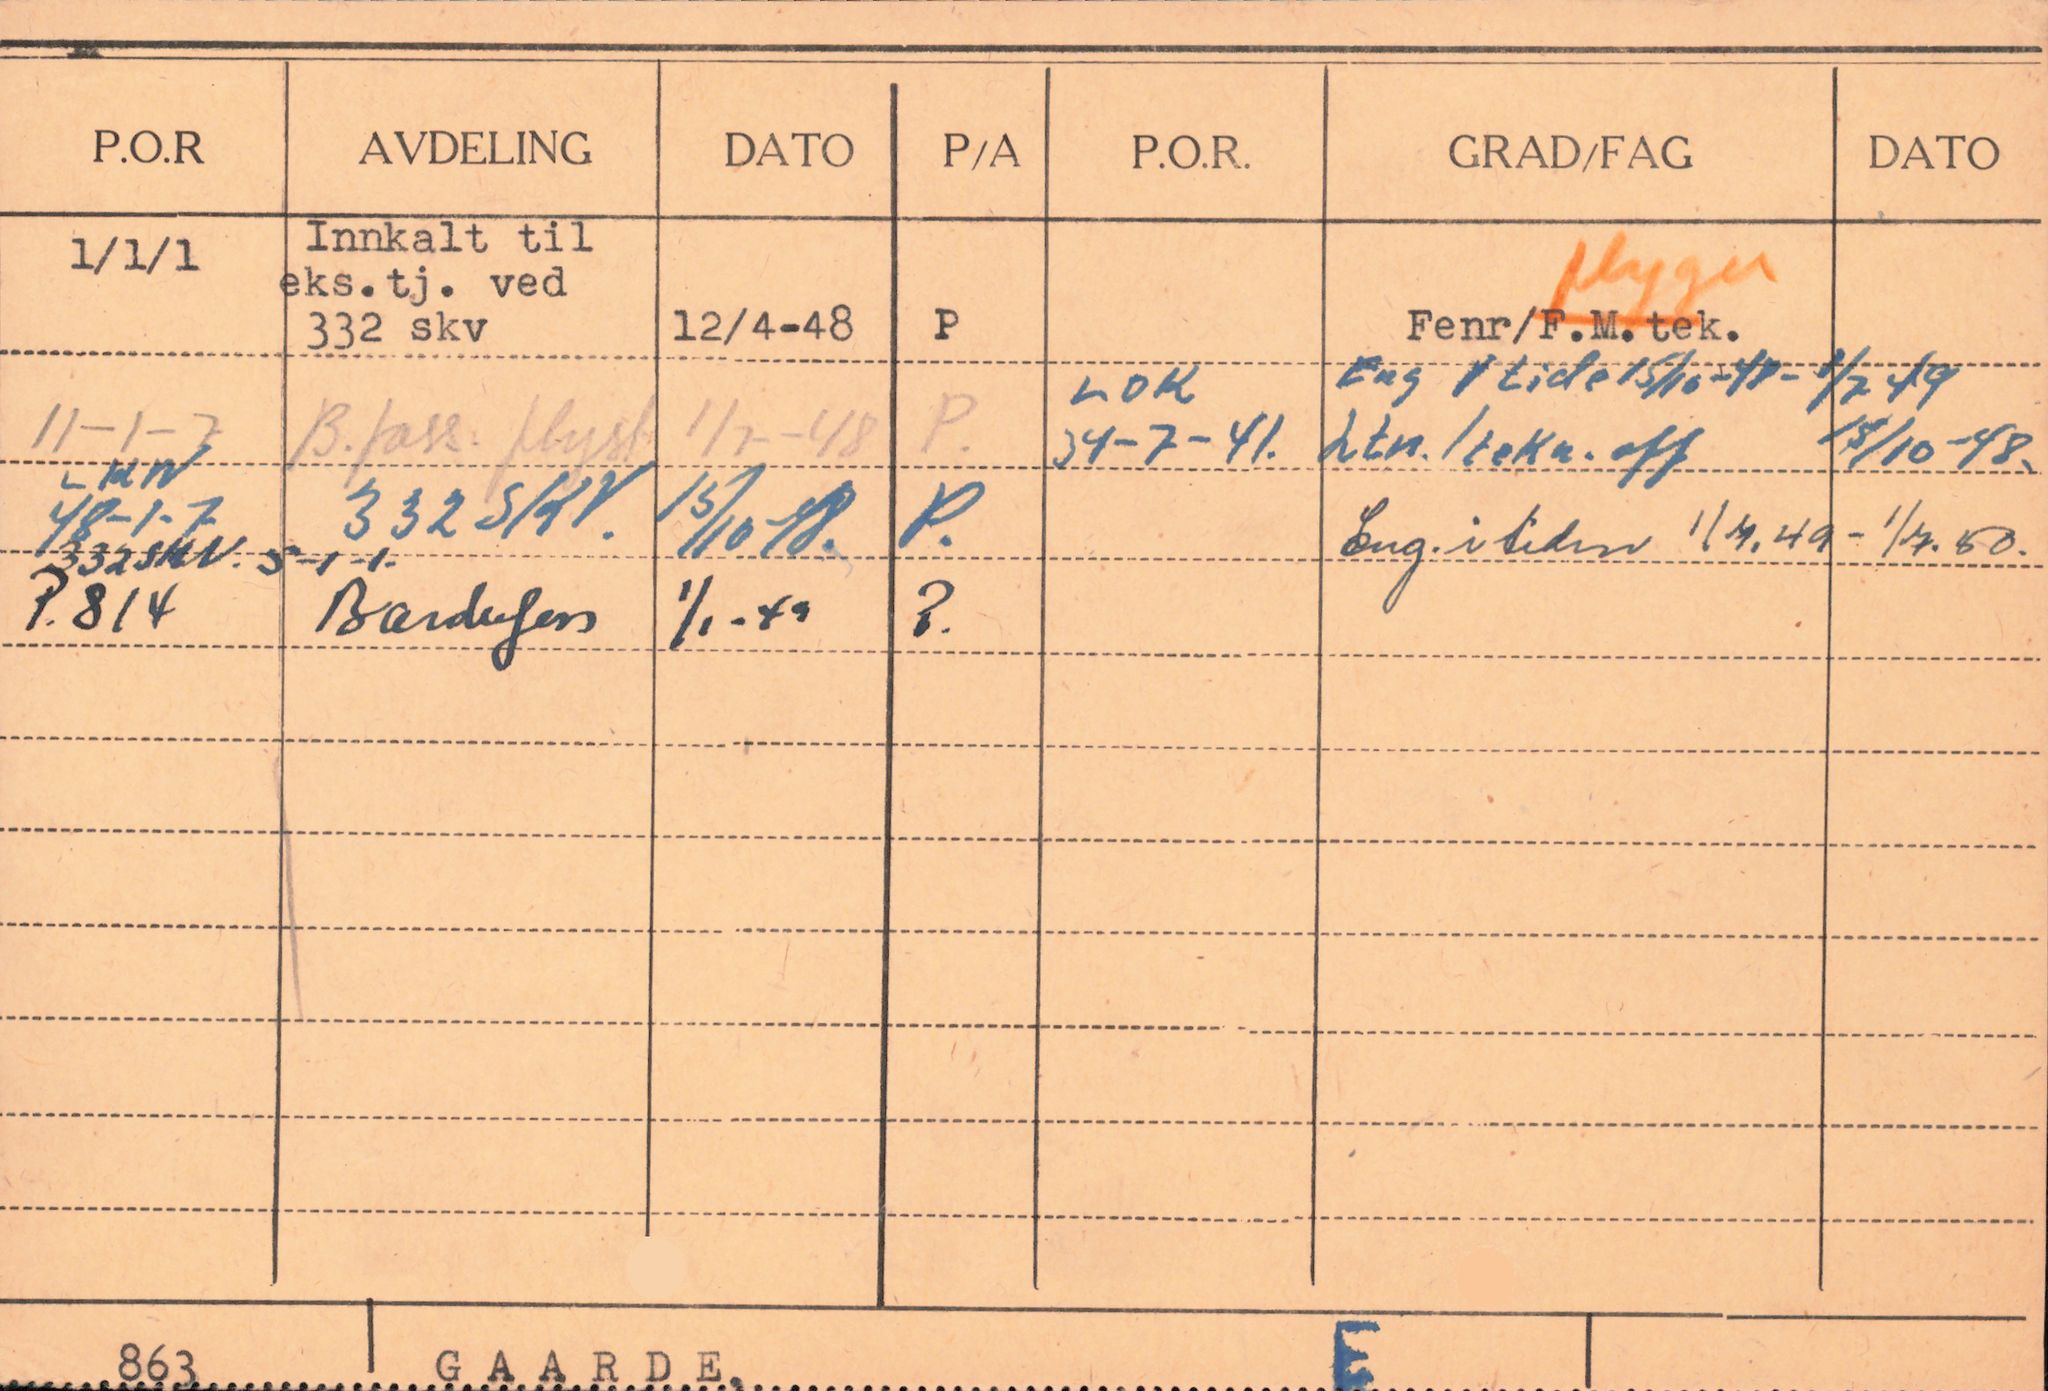 P.O.R AVDELING DATO P/A P.O.R. GRAD/FAG DATO
1/1/1 Innkalt til
eks.tj. ved flyger
332 skv 12/4-48 P Fenr/F.M.tek.
LOK Eng i tide 15/10-48 - 1/7 49
11-1-7 B.fass. flyst 1/7-48 P. 34-7-41. Ltn./tekn.off 15/10-48.
LKN
48-1-7 332 SKV. 15/10-48. P. Eng. i tiden 1/7.49 - 1/7.50.
332 SKV. 5-1-1.
P.814 Bardufoss 1/1-49 P.
863 GAARDE, E